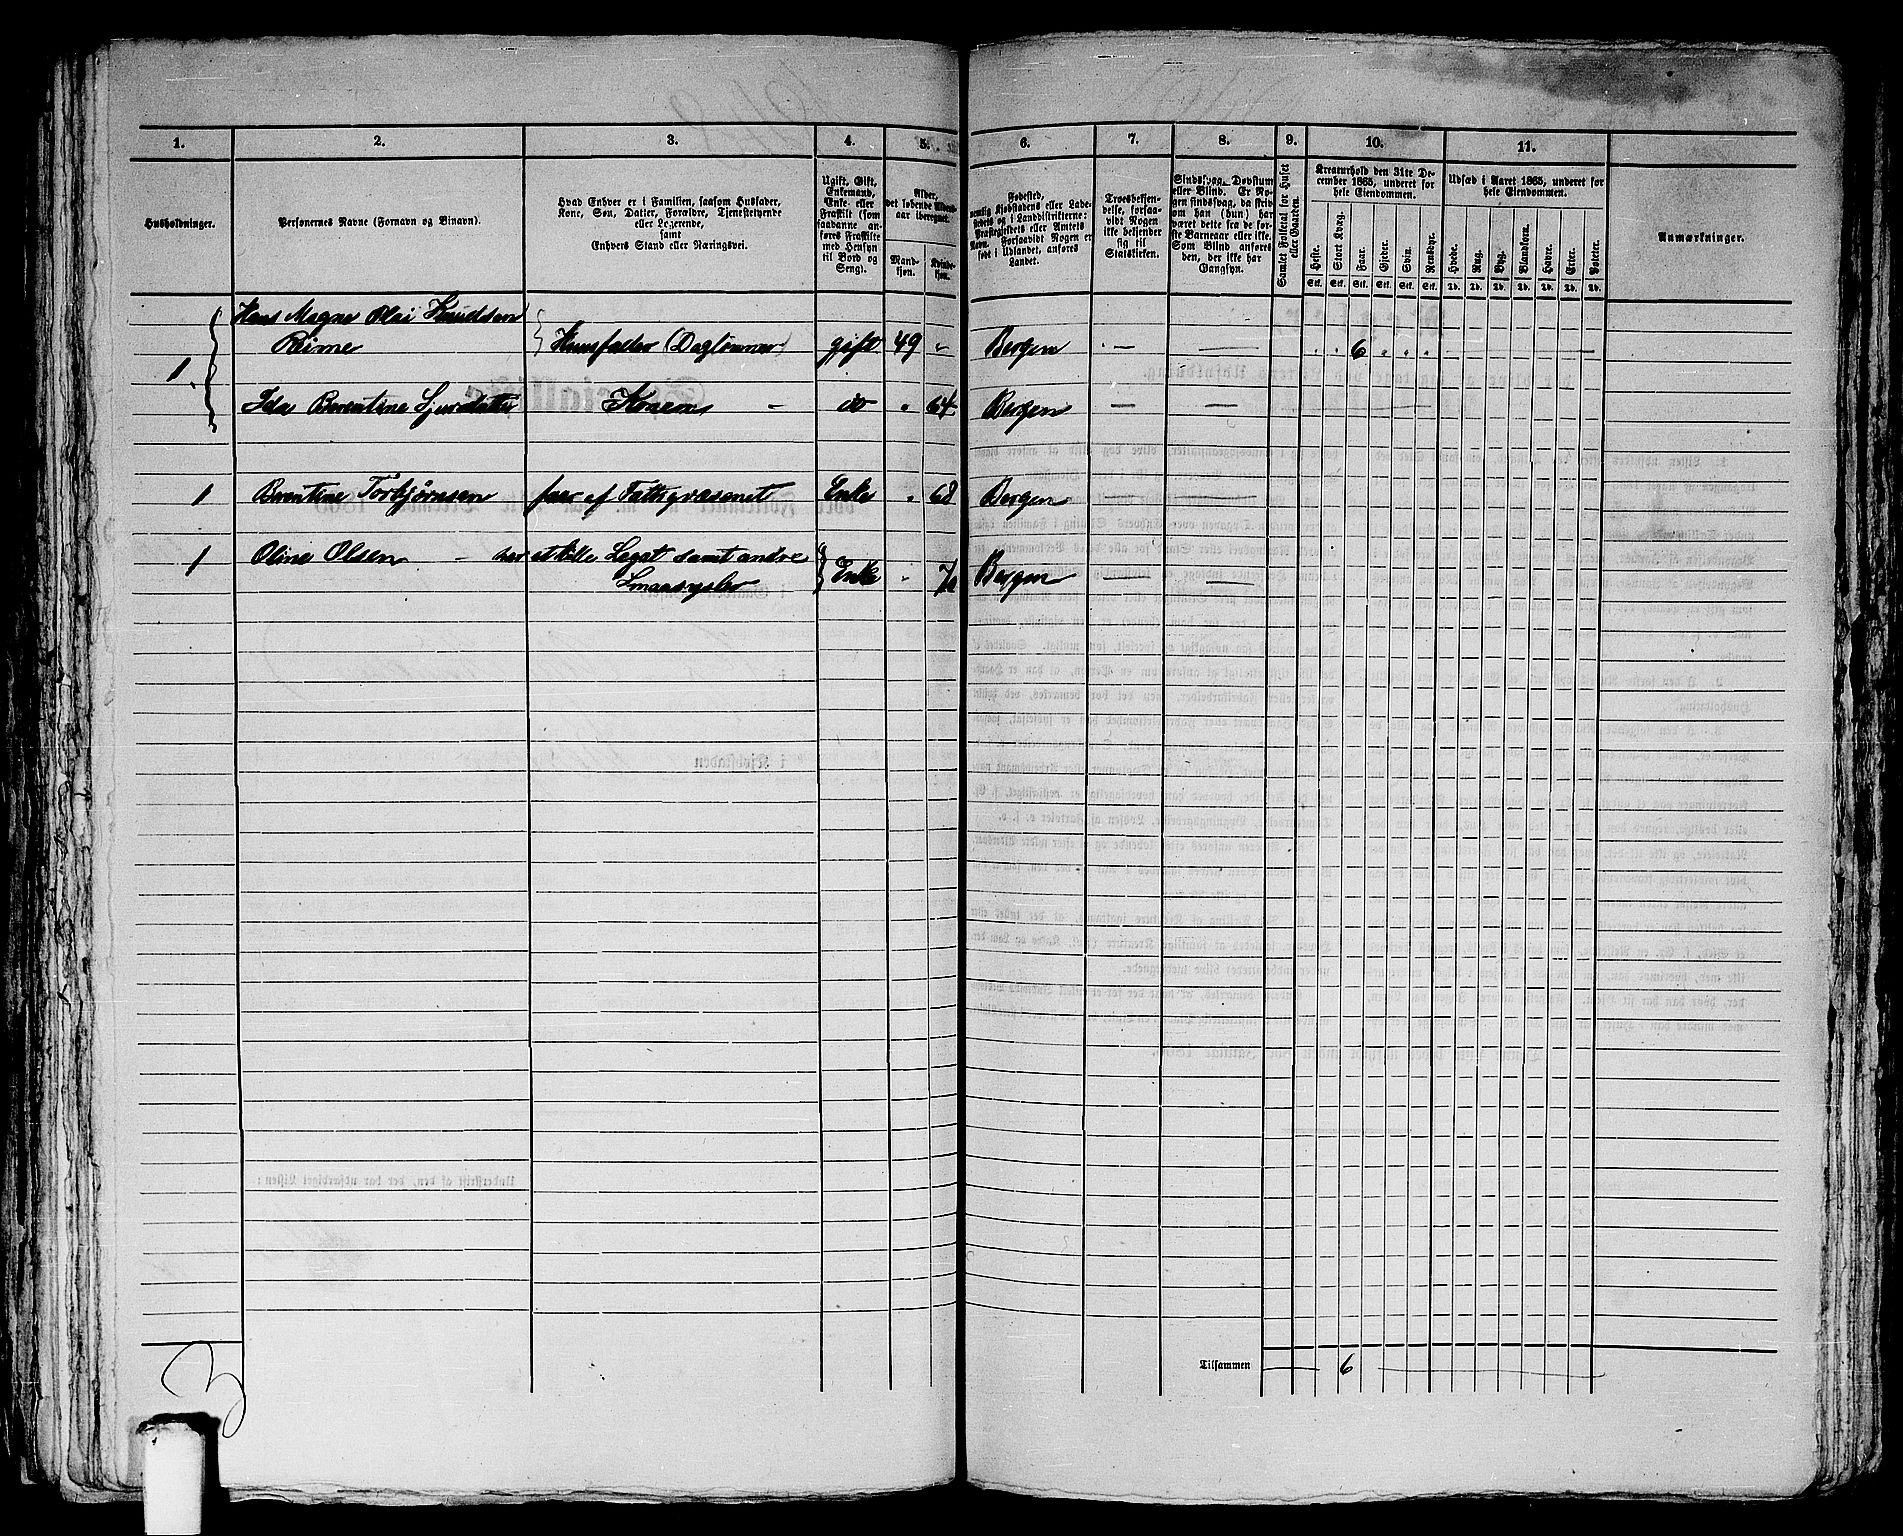 1.
2.
3.
4.
5.
6.
7.
8.
9.
10.
11.
Husholdninger.
Personernes Navne (Fornavn og Binavn).
Hvad Enhver er i Familien, saasom Husfader,
Kone, Søn, Datter, Forældre, Tjenestetyende
eller Logerende,
samt
Enhvers Stand eller Næringsvei.
Ugift, Gift,
Enkemand,
Enke- eller
Fraskilt (som
saadanne an-
føres Fraskilte
med Hensyn
til Bord og
Seng).
Alder,
det løbende Alders-
aar iberegnet.
Mand-
kjøn.
Kvinde-
kjøn.
Fødested,
nemlig Kjøbstadens eller Lade-
stedets og i Landdistrikterne:
Præstegjeldets eller Amtets
Navn. Forsaavidt Nogen er
født i Udlandet, anføres
Landet.
Troesbekjen-
delse, forsaa-
vidt Nogen
ikke bekjender
sig til
Statskirken.
Sindssvag, Døvstum
eller Blind. Er No-
gen sindssvag, da skriv
om han (hun) har
været dette fra de før-
ste Barneaar eller ikke.
Som Blind anføres
den, der ikke har
Gangsyn.
Samlet Folketal for Huset
eller Gaarden.
Kreaturhold den 31te De-
cember 1865, underet for
hele Eiendommen.
Heste. Stort Kvæg. Faar. Gjeder. Svin. Rensdyr.
Stk. Stk. Stk. Stk. Stk. Stk.
Udsæd i Aaret 1865, underet for
hele Eiendommen.
Hvede. Rug. Byg. Blandkorn. Havre. Erter. Poteter.
Td. Td. Td. Td. Td. Td. Td.
Anmærkninger.
Hans Magne Olai Knudsen
1 Rime Huusfader (Daglønner) gift 49 " Bergen — — 6
Ida Berentine Sjursdatter Konen - do " 64 Bergen — —
1 Berentine Torbjørnsen faar af Fattigvæsenet Enke " 68 Bergen — —
1 Oline Olsen - har et lille Legat samt andre
Smaasysler Enke " Bergen — —
Tilsammen 6
3